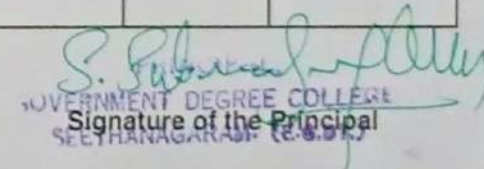 S.
GOVERNMENT DEGREE COLLEGE
Signature of the Principal
SEETHANAGARAM (E.G.DT.)